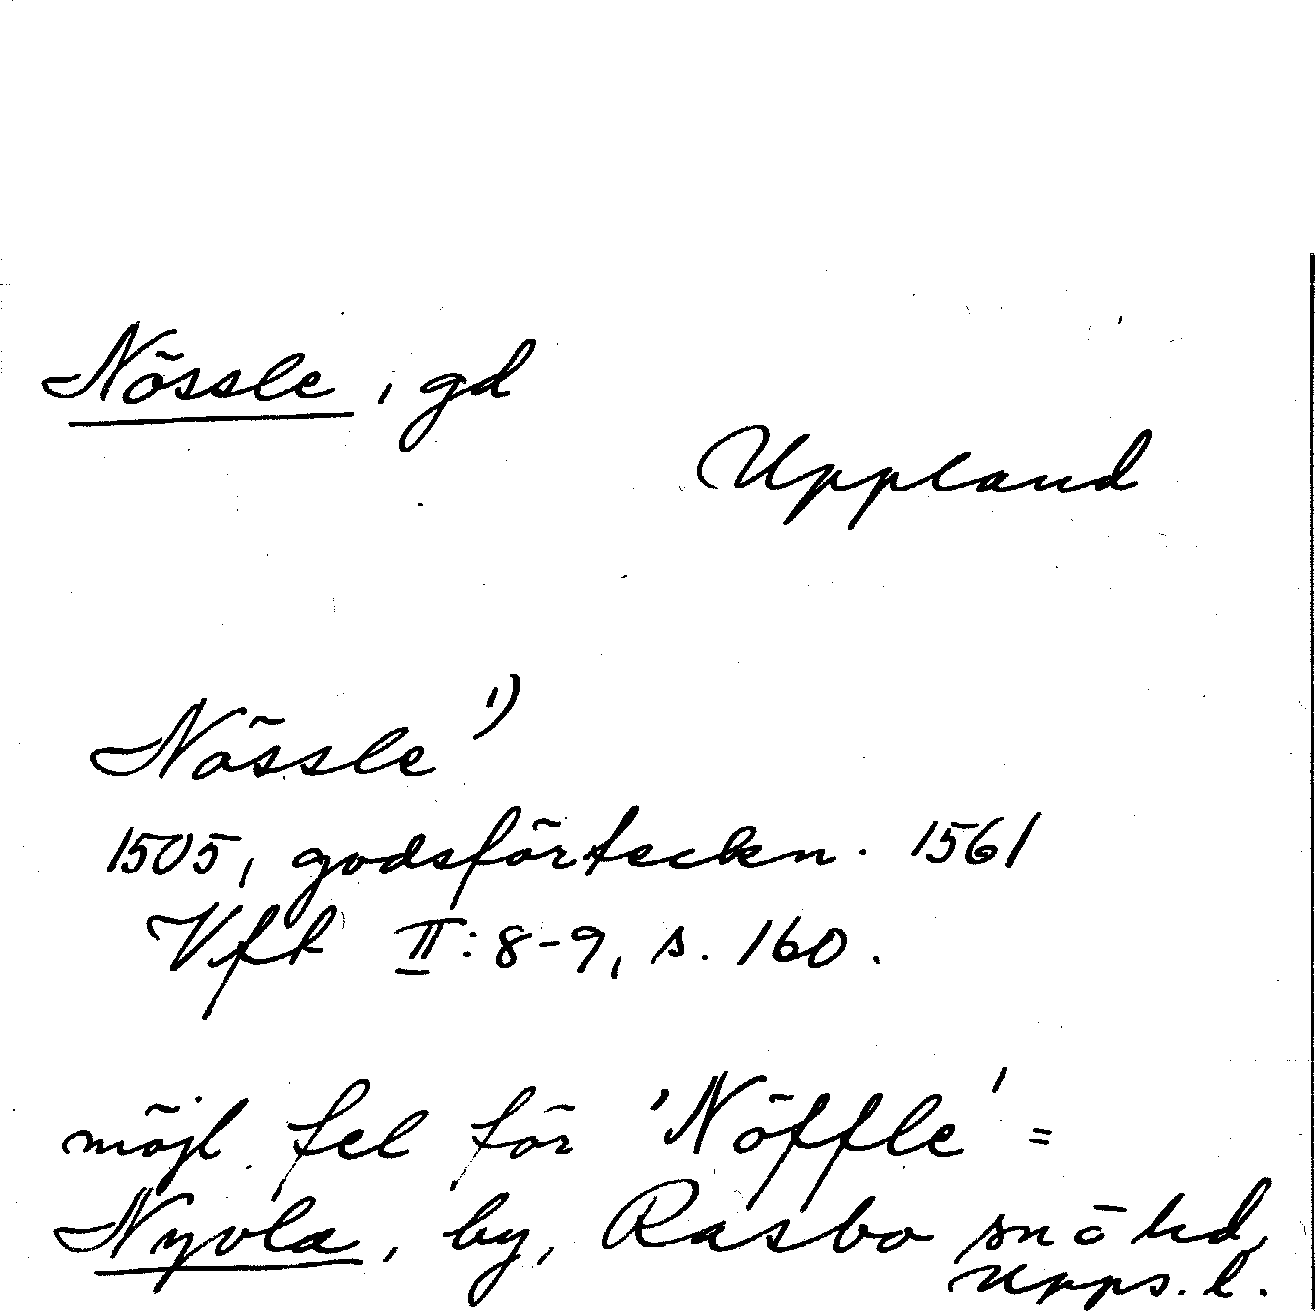 Nössle, gd
Uppland
Nössle 1)
1505, godsförteckn. 1561
Vfk II:8-9, s. 160.
möjl. fel för 'Nöffle' =
Nyvla, by, Rasbo sn o hd,
Upps. l.